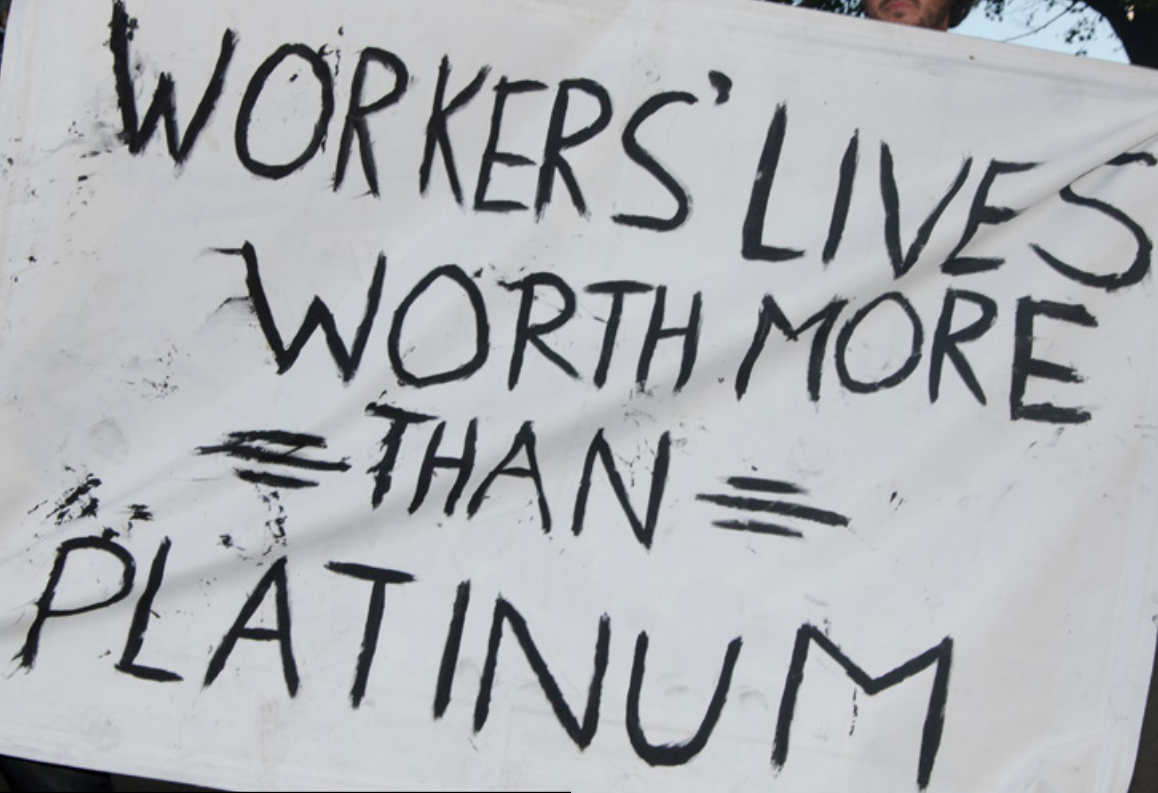 WORKERS' LIVES
WORTH MORE
THAN
PLATINUM